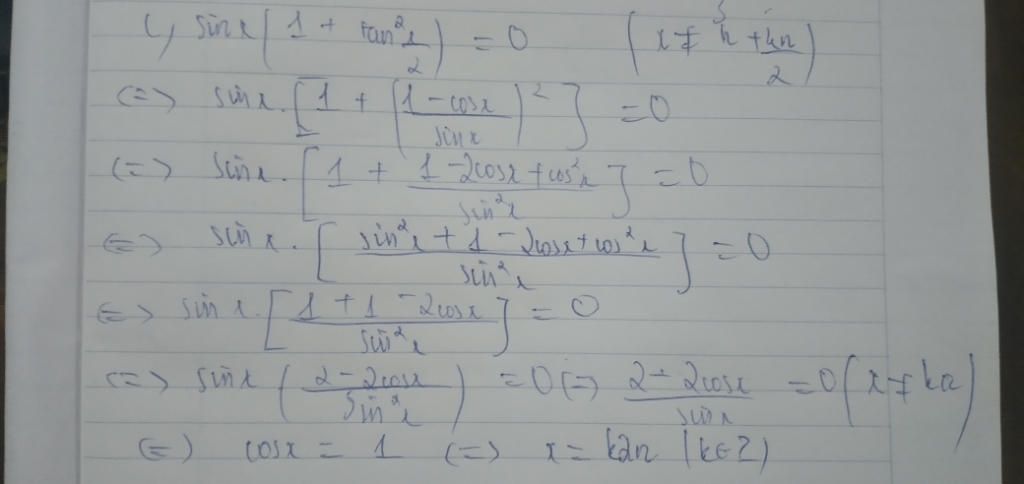 c, sin x (1 + tan² x/2) = 0 (x ≠ π + kπ/2)
<=> sin x . [1 + ((1 - cos x)/(sin x))²] = 0
<=> sin x . [1 + (1 - 2cos x + cos² x)/(sin² x)] = 0
<=> sin x . [(sin² x + 1 - 2cos x + cos² x)/(sin² x)] = 0
<=> sin x . [(1 + 1 - 2cos x)/(sin² x)] = 0
<=> sin x ((2 - 2cos x)/(sin² x)) = 0 <=> (2 - 2cos x)/(sin x) = 0 (x ≠ kπ)
<=> cos x = 1 <=> x = k2π (k ∈ Z)